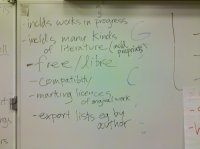 - holds works in progress
- yields many kinds
of literature (incl. preprints)
- free/libre
- compatibility
- marking licences
of original work
- export lists eg by
author